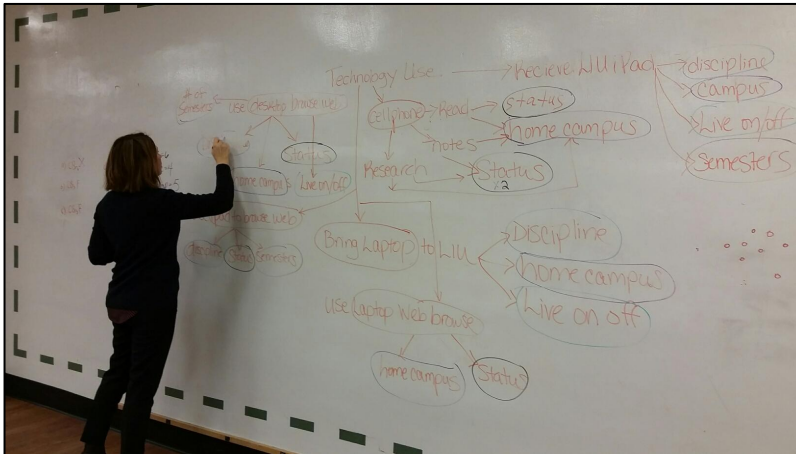 Technology Use
Recieve LIU iPad
discipline
campus
Live on/off
Semesters
# of
Semesters
use desktop browse web
status
home campus
Live on/off
Cellphone
Read
status
home campus
notes
Research
Status
x2
to browse web
discipline
Status
Semesters
Bring Laptop to LIU
Discipline
home campus
Live on off
Use Laptop Web browse
home campus
Status